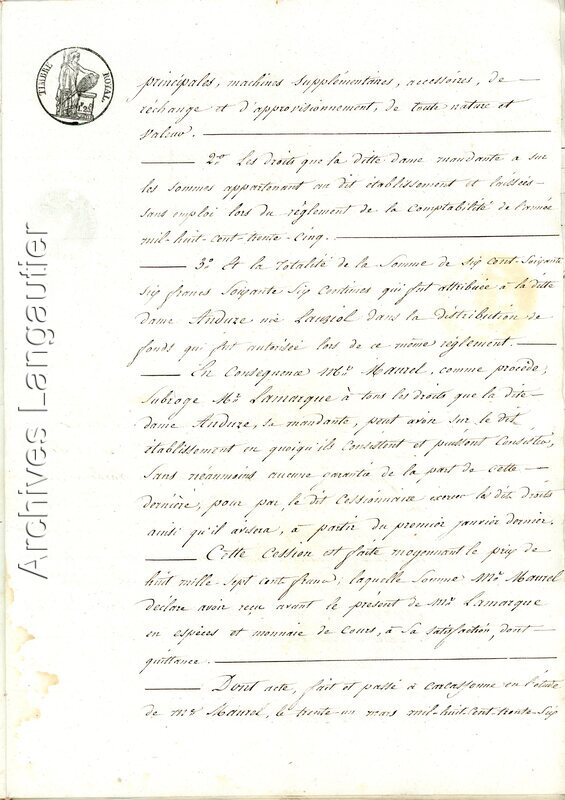 TIMBRE ROYAL.
principales, machines supplémentaires, accessoires, de
réchange et d'approvisionnement, de toute nature et
valeur.
2º Les droits que la ditte dame mandante a sur
les sommes appartenant au dit établissement et laissées
sans emploi lors du réglement de la comptabilité de l'année
mil-huit-cent-trente-cinq.
3º Et la totalité de la somme de six cent-soixante
six francs soixante six centimes qui fut attribuée à la ditte
dame Anduze née Lauziol dans la distribution de
fonds qui fut autorisée lors de ce même réglement.
En conséquence Mr. Maurel, comme procède,
subroge Mr. Lamarque à tous les droits que la dite
dame Anduze, sa mandante, peut avoir sur le dit
établissement en quoiqu'ils consistent et puissent consister,
sans néaumoins aucune garantie de la part de cette
dernière, pour par le dit cessionnaire exercer les dits droits
ainsi qu'il avisera, à partir du premier janvier dernier.
Cette cession est faite moyennant le prix de
huit mille sept cent francs, laquelle somme Mr. Maurel
déclare avoir reçu avant le présent de Mr. Lamarque
en espèces et monnaie de cours, à sa satisfaction, dont
quittance.
Dont acte, fait et passé à Carcassonne en l'étude
de Mr Maurel, le trente-un mars mil-huit-cent-trente-six
Archives Langautier